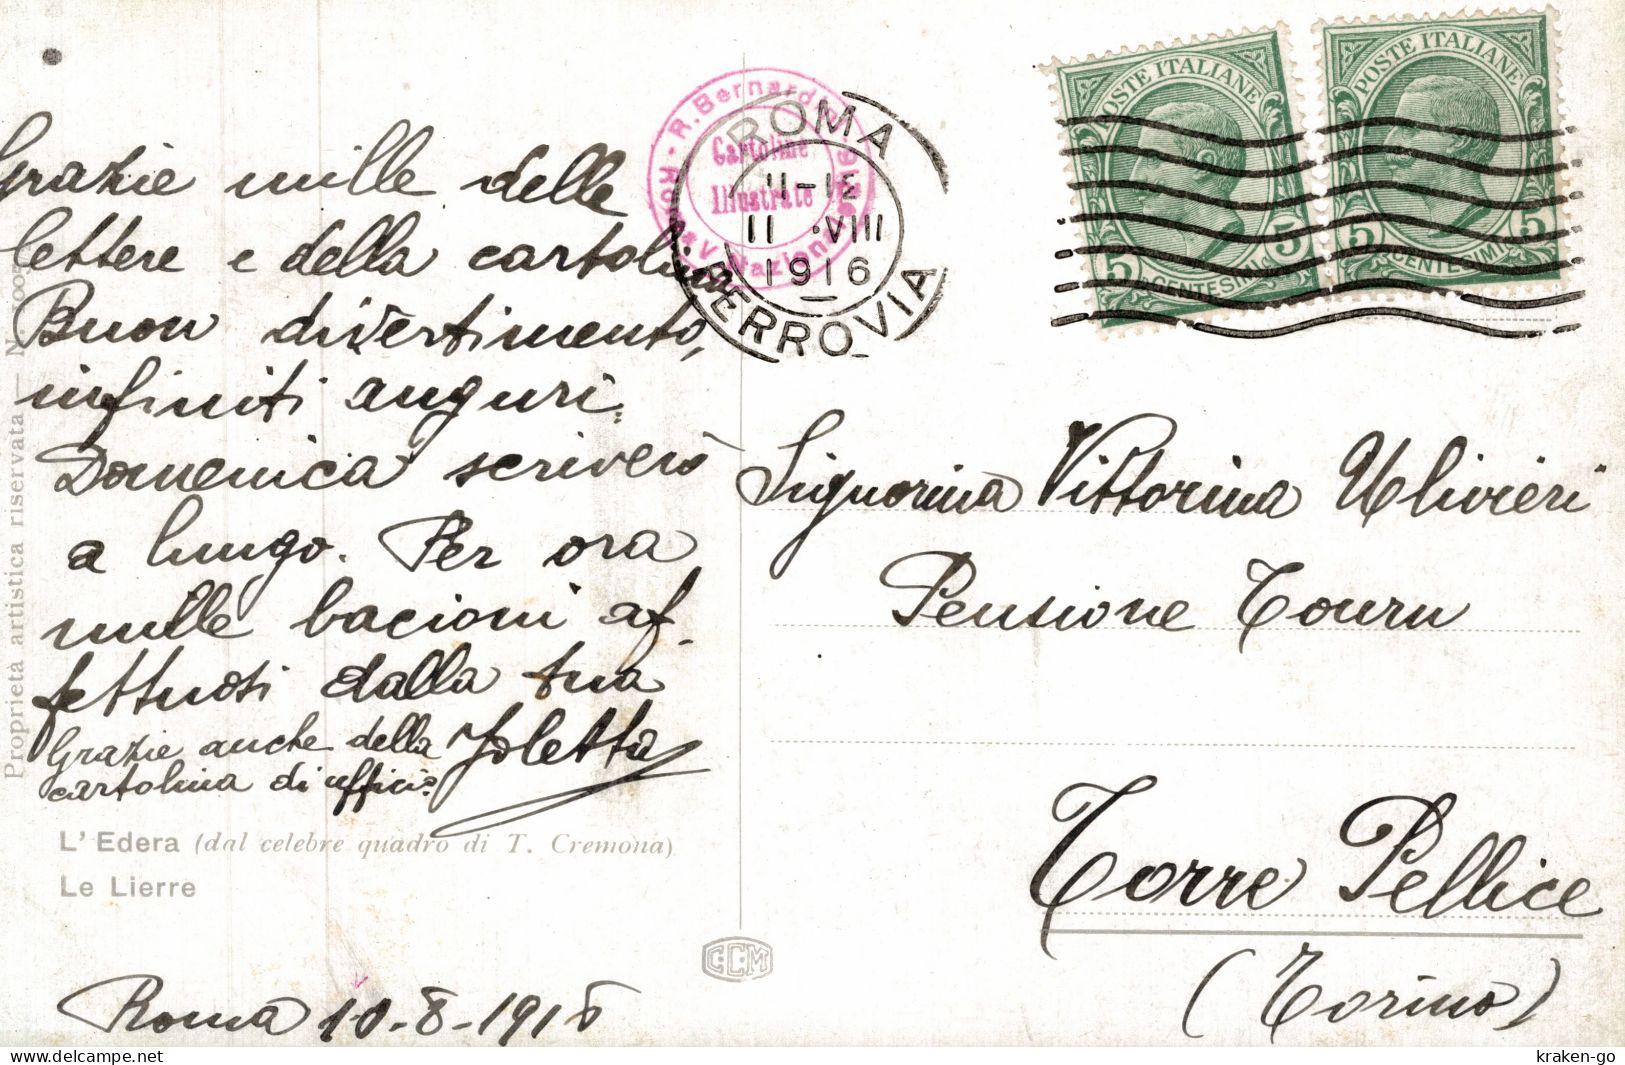 Grazie mille delle
lettere e della cartolina.
Buon divertimento,
infiniti auguri.
Domenica scriverò
a lungo. Per ora
mille bacioni af-
fettuosi dalla tua
Joletta
Grazie anche della
cartolina di ufficio
L'Edera (dal celebre quadro di T. Cremona)
Le Lierre
Roma 10-8-1916
Proprietà artistica riservata — N. 005
CCM
R. Bernardini
Cartoline
Illustrate
Roma Via Nazionale
ROMA
11-12
11 ·VIII
1916
FERROVIA
POSTE ITALIANE
5 CENTESIMI 5
POSTE ITALIANE
5 CENTESIMI 5
Signorina Vittorina Ulivieri
Pensione Tourn
Torre Pellice
(Torino)
kraken-go
delcampe.net